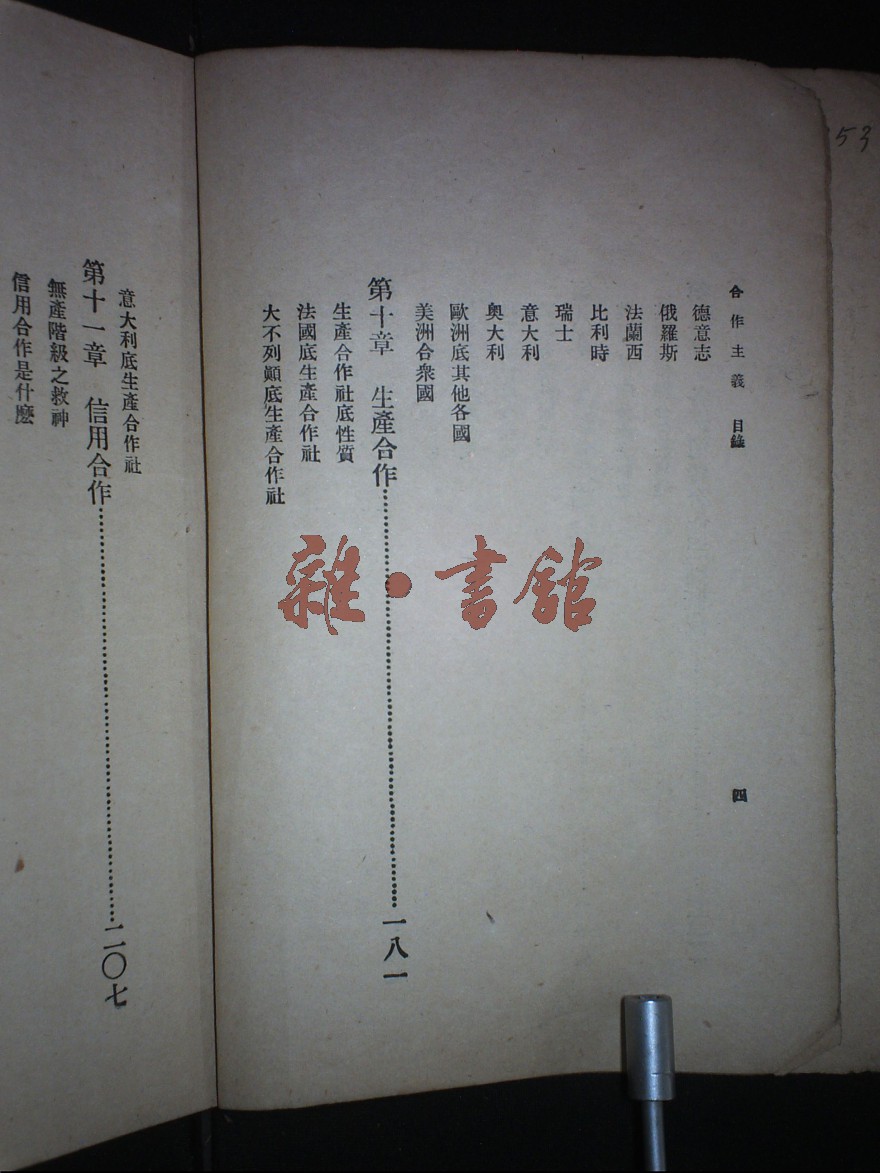 合作主義 目錄
四
德意志
俄羅斯
法蘭西
比利時
瑞士
意大利
奧大利
歐洲底其他各國
美洲合衆國
第十章 生產合作………一八一
生產合作社底性質
法國底生產合作社
大不列顛底生產合作社
意大利底生產合作社
第十一章 信用合作………二〇七
無產階級之救神
信用合作是什麽
雜·書館
53